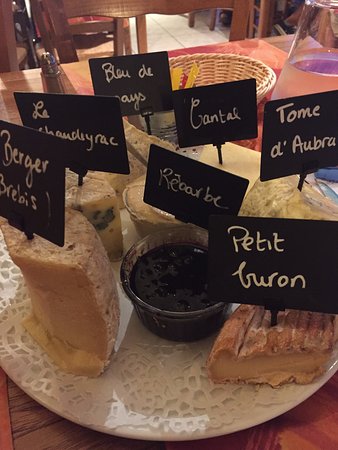 Bleu de
pays
Cantal
Tome
d'Aubra
Le
chaudeyrac
Berger
Brebis)
Rêbarbe
Petit
buron